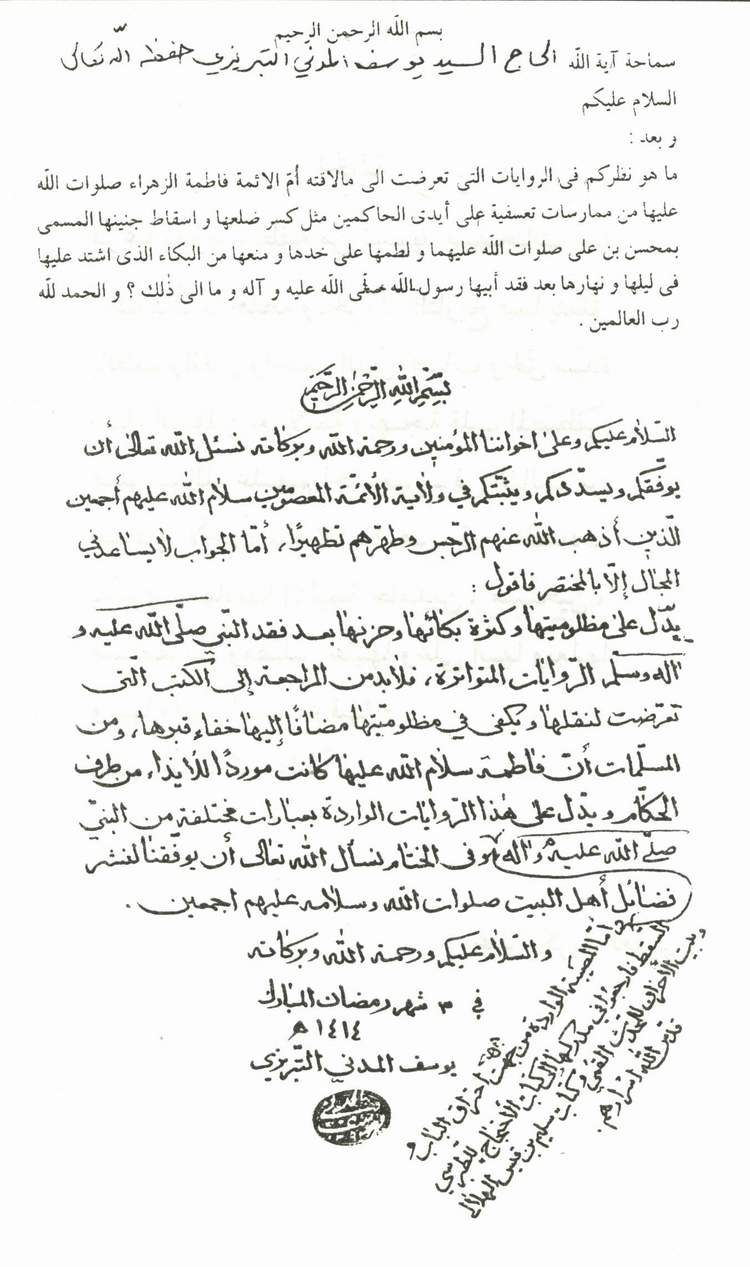 بسم الله الرحمن الرحيم
سماحة آية الله الحاج السيد يوسف المدني التبريزي حفظه الله تعالى
السلام عليكم
و بعد :
ما هو نظركم فى الروايات التى تعرضت الى مالاقته أُمّ الائمة فاطمة الزهراء صلوات الله
عليها من ممارسات تعسفية على أيدى الحاكمين مثل كسر ضلعها و اسقاط جنينها المسمى
بمحسن بن على صلوات الله عليهما و لطمها على خدها و منعها من البكاء الذى اشتد عليها
فى ليلها و نهارها بعد فقد أبيها رسول الله صلّى الله عليه و آله و ما الى ذلك ؟ و الحمد لله
رب العالمين .
بسم الله الرّحمن الرّحيم
السّلام عليكم وعلى اخواننا المؤمنين ورحمة الله وبركاته نسئل الله تعالى أن
يوفّقكم ويسدّدكم ويثبّتكم في ولاية الأئمّة المعصومين سلام الله عليهم أجمعين
الّذين أذهب الله عنهم الرّجس وطهّرهم تطهيرًا، أمّا الجواب لايساعدني
المجال إلّا بالمختصر فاقول :
يدّل على مظلوميتها وكثرة بكائها وحزنها بعد فقد النّبي صلّى الله عليه و
اله وسلّم الرّوايات المتواترة، فلابد من المراجعة إلى الكتب الّتى
تعرّضت لنقلها ويكفى في مظلوميّتها مضافًا إليها خفاء قبرها، ومن
المسلّمات أنّ فاطمة سلام الله عليها كانت موردًا للأيذاء من طرف
الحكّام ويدّل على هذا الرّوايات الواردة بعبارات مختلفة من النبيّ
صلّى الله عليه واله وفى الختام نسأل الله تعالى أن يوفّقنا لنشر
فضائل أهل البيت صلوات الله وسلامه عليهم اجمعين .
والسّلام عليكم ورحمة الله وبركاته
في ٣ شهر رمضان المبارك
١٤١٤ هـ
يوسف المدني التّبريزي
و أما المصيبة الواردة من جهة احتراق الباب و
السقط فارجعوا في مدركها الى كتاب الأحتجاج للطبرسي
وبيت الأحزان للمحدث القمي وكتاب سليم بن قيس الهلالي
قدس الله اسرارهم .